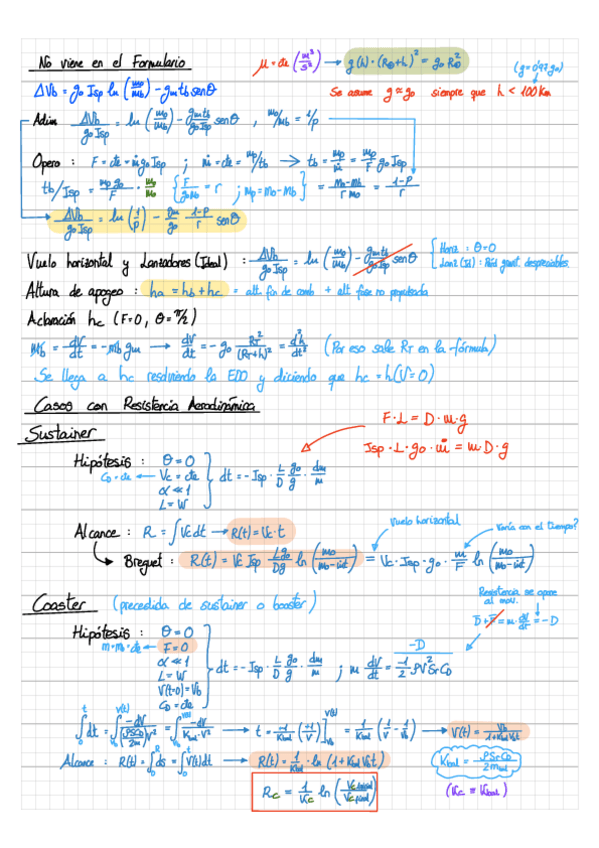 No viene en el Formulario
μ = cte (m³/s²) → g(h)·(R⊕+h)² = g₀R⊕²
(g = 0.97g₀)
ΔVb = g₀ Isp ln(m₀/mb) − gm tb senθ
Se asume g ≈ g₀ siempre que h < 100 Km
Adim ΔVb/(g₀ Isp) = ln(m₀/mb) − (gm tb)/(g₀ Isp) senθ , mb/m₀ = 1/p
Opero : F = cte = ṁ g₀ Isp ; ṁ = cte = mp/tb → tb = mp/ṁ = mp/F g₀ Isp
tb/Isp = (mp g₀)/F · m₀/m₀ { F/(g₀ m₀) = r ; mp = m₀ − mb } = (m₀−mb)/(r m₀) = (1−P)/r
ΔVb/(g₀ Isp) = ln(1/p) − gm/g₀ (1−P)/r senθ
Vuelo horizontal y Lanzadores (Ideal) : ΔVb/(g₀ Isp) = ln(m₀/mb) − (gm tb)/(g₀ Isp) senθ
{ Horiz : θ = 0
Lanz (Id) : Pérd gravit. despreciables.
Altura de apogeo : ha = hb + hc = alt. fin de comb + alt fase no propulsada
Aclaración hc (F=0, θ = π/2)
mb dV/dt = −mb gm → dV/dt = −g₀ R_T²/(R_T+h)² = d²h/dt² (Por eso sale R_T en la fórmula)
Se llega a hc resolviendo la EDO y diciendo que hc = h(V=0)
Casos con Resistencia Aerodinámica
F·L = D·m·g
Sustainer
Isp·L·g₀·ṁ = m·D·g
Hipótesis : θ = 0
CD = cte ← Vc = cte
α << 1
L = W
} dt = −Isp · L/D · g₀/g · dm/m
Alcance : R = ∫Vc dt → R(t) = Vc·t
Vuelo horizontal
Varía con el tiempo?
Breguet : R(t) = Vc Isp (L g₀)/(D g) ln(m₀/(m₀−ṁt)) = Vc·Isp·g₀· m/F ln(m₀/(m₀−ṁt))
Coaster (precedida de sustainer o booster)
Resistencia se opone al mov.
Hipótesis : θ = 0
D + F = m·dV/dt = −D
m = mb cte ← F = 0
α << 1
L = W
V(t=0) = Vb
CD = cte
} dt = −Isp · L/D · g₀/g · dm/m ; m dV/dt = −1/2 ρV²SrCD
−D
∫dt = ∫ −dV/((ρSCD/2m)V²) = ∫ −dV/(Kbal·V²) → t = −1/Kbal (−1/V) = 1/Kbal (1/V − 1/Vb) → V(t) = Vb/(1+Kbal Vb t)
Alcance : R(t) = ∫ds = ∫V(t)dt → R(t) = 1/Kbal · ln(1+Kbal Vb t)
Kbal = ρSrCD/2mbal
(Kc = Kbal)
Rc = 1/Kc ln(Vc inicial/Vc final)